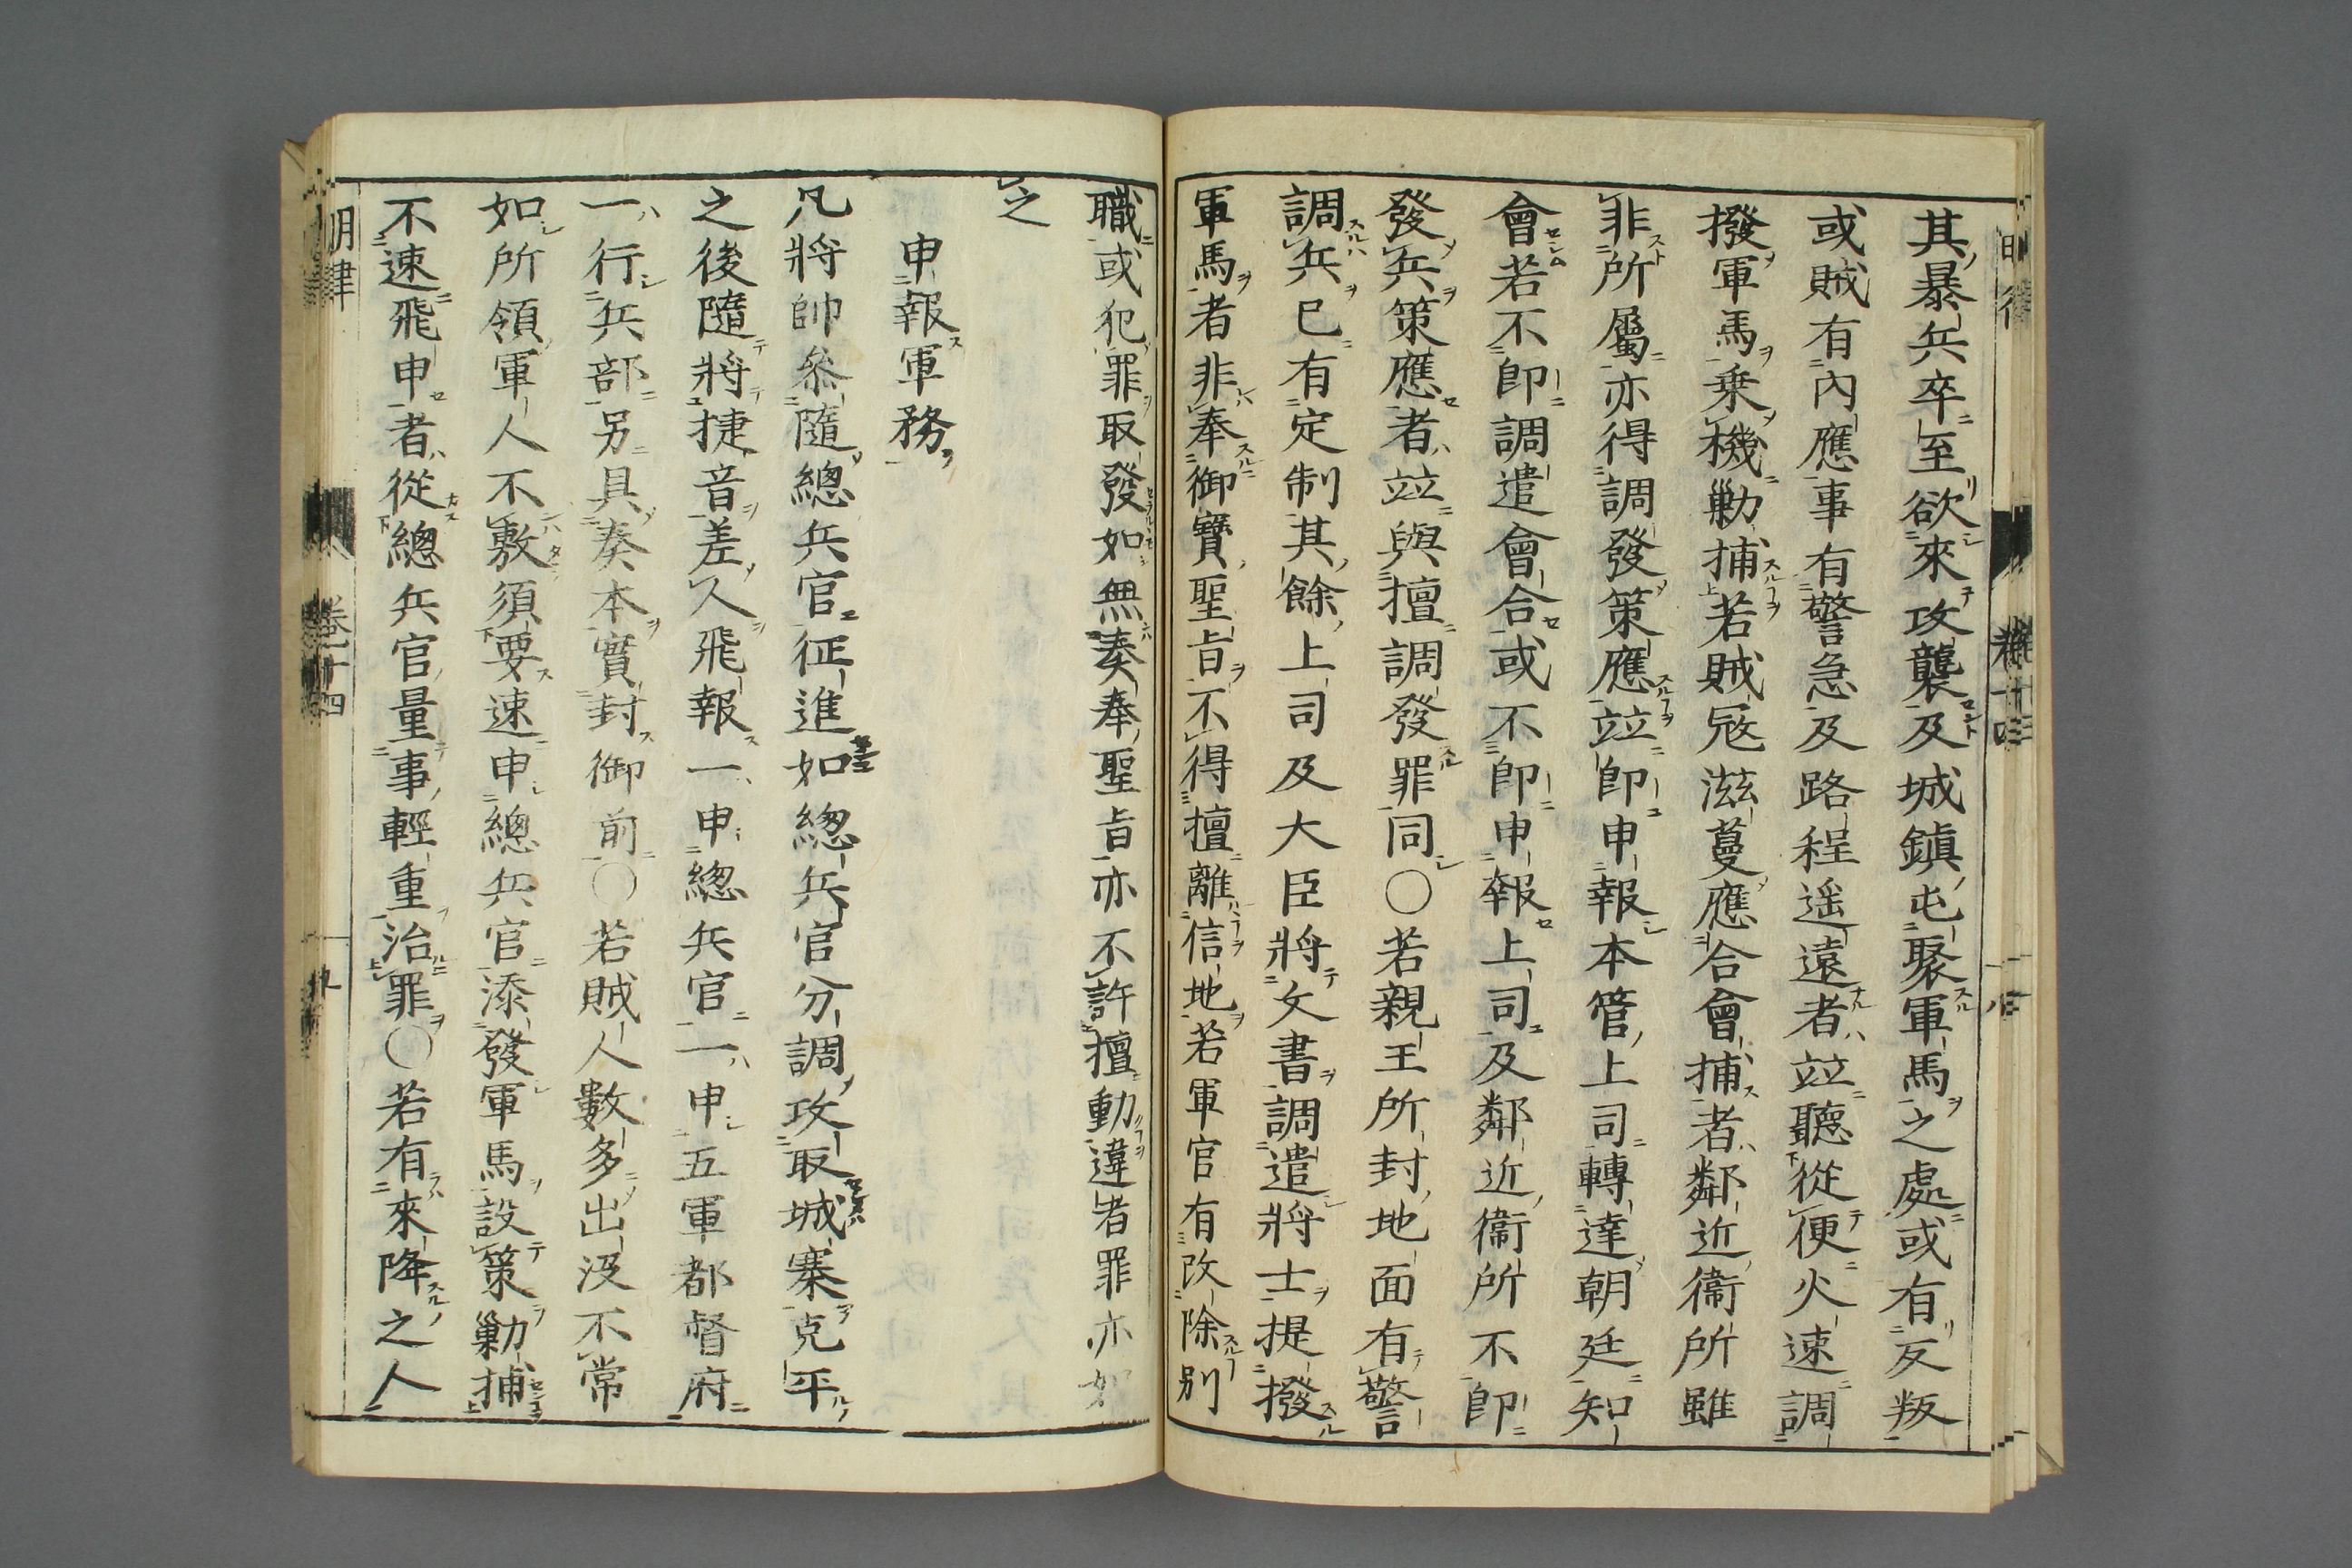 其暴兵卒至欲來攻襲及城鎮屯聚軍馬之處或有反叛
或賊有內應事有警急及路程遥遠者竝聽從便火速調
撥軍馬乗機勦捕若賊㓂滋蔓應合會捕者鄰近衞所雖
非所屬亦得調發策應竝卽申報本管上司轉達朝廷知
會若不卽調遣會合或不卽申報上司及鄰近衞所不卽
發兵策應者竝與擅調發罪同〇若親王所封地面有警
調兵已有定制其餘上司及大臣將文書調遣將士提撥
軍馬者非奉御寶聖旨不得擅離信地若軍官有改除別
職或犯罪取發如無奏奉聖旨亦不許擅動違者罪亦如
之
申報軍務
凡將帥叅隨總兵官征進如總兵官分調攻取城寨克平
之後隨將捷音差人飛報一申總兵官一申五軍都督府
一行兵部另具奏本實封御前〇若賊人數多出没不常
如所領軍人不敷須要速申總兵官添發軍馬設策勦捕
不速飛申者從總兵官量事輕重治罪〇若有來降之人
明律 卷十四 九